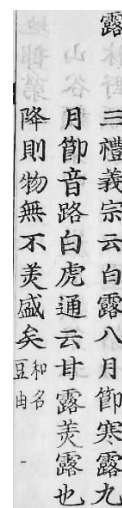 露 三禮義宗云白露八月節寒露九
月節音路白虎通云甘露羙露也
降則物無不羙盛矣 和名
豆由